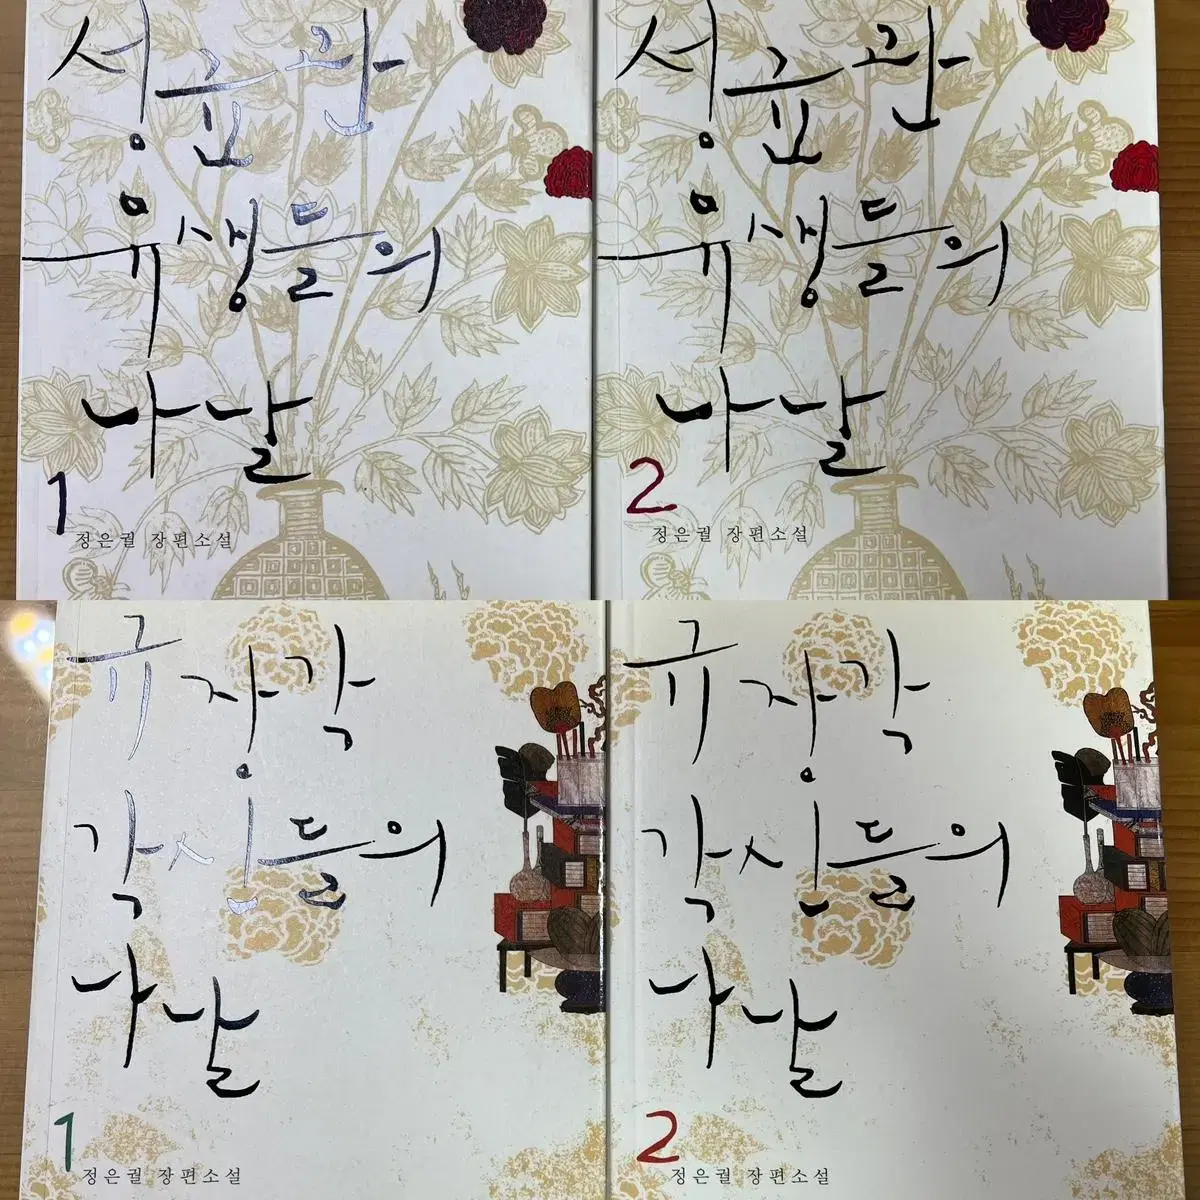 성균관
유생들의
나날
1
정은궐 장편소설
성균관
유생들의
나날
2
정은궐 장편소설
규장각
각신들의
나날
1
정은궐 장편소설
규장각
각신들의
나날
2
정은궐 장편소설